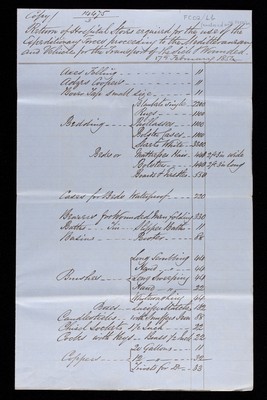 Copy
11475
Return of Hospital Stores required for the use of the
Expeditionary Force proceeding to the Mediterranean
and Vehicles for the Transport of the Sick & Wounded.
17th February 1854
Axes Felling 11
Adzes Coopers 11
Boxes Tape small size 11
Bedding Blankets single 2200
Rugs 1100
Palliasses 1100
Bolster Cases 1100
Sheets White 3300
Beds or Mattresses Hair 440 2ft 3in wide
Bolsters 440 2ft 3in long
Boards & Trestles 550
Cases for Beds Waterproof 220
Bearers for Wounded Men folding
Baths Tin Slipper Bath 11
Basins Pewter 88
Brushes Long Scrubbing 44
Hand 44
Long Sweeping 44
Hand 22
Whitewashing 44
Boxes Lucifer Matches
Candlesticks with Snuffers Iron
Chisel Sockets 1½ Inch 22
Cocks with Keys Brass ½ Inch 22
Coppers 20 Gallons 11
Trivets for Do 33